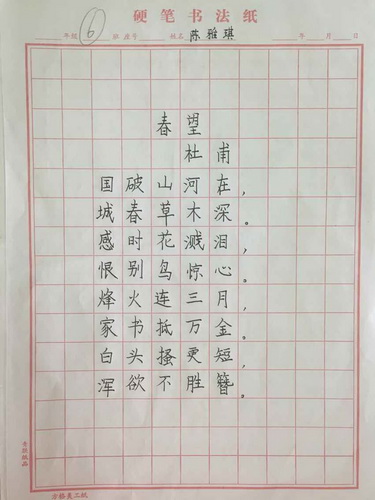 硬笔书法纸
年级 6 班 座号 姓名 陈雅琪 年 月 日
春望
杜甫
国破山河在，
城春草木深。
感时花溅泪，
恨别鸟惊心。
烽火连三月，
家书抵万金。
白头搔更短，
浑欲不胜簪。